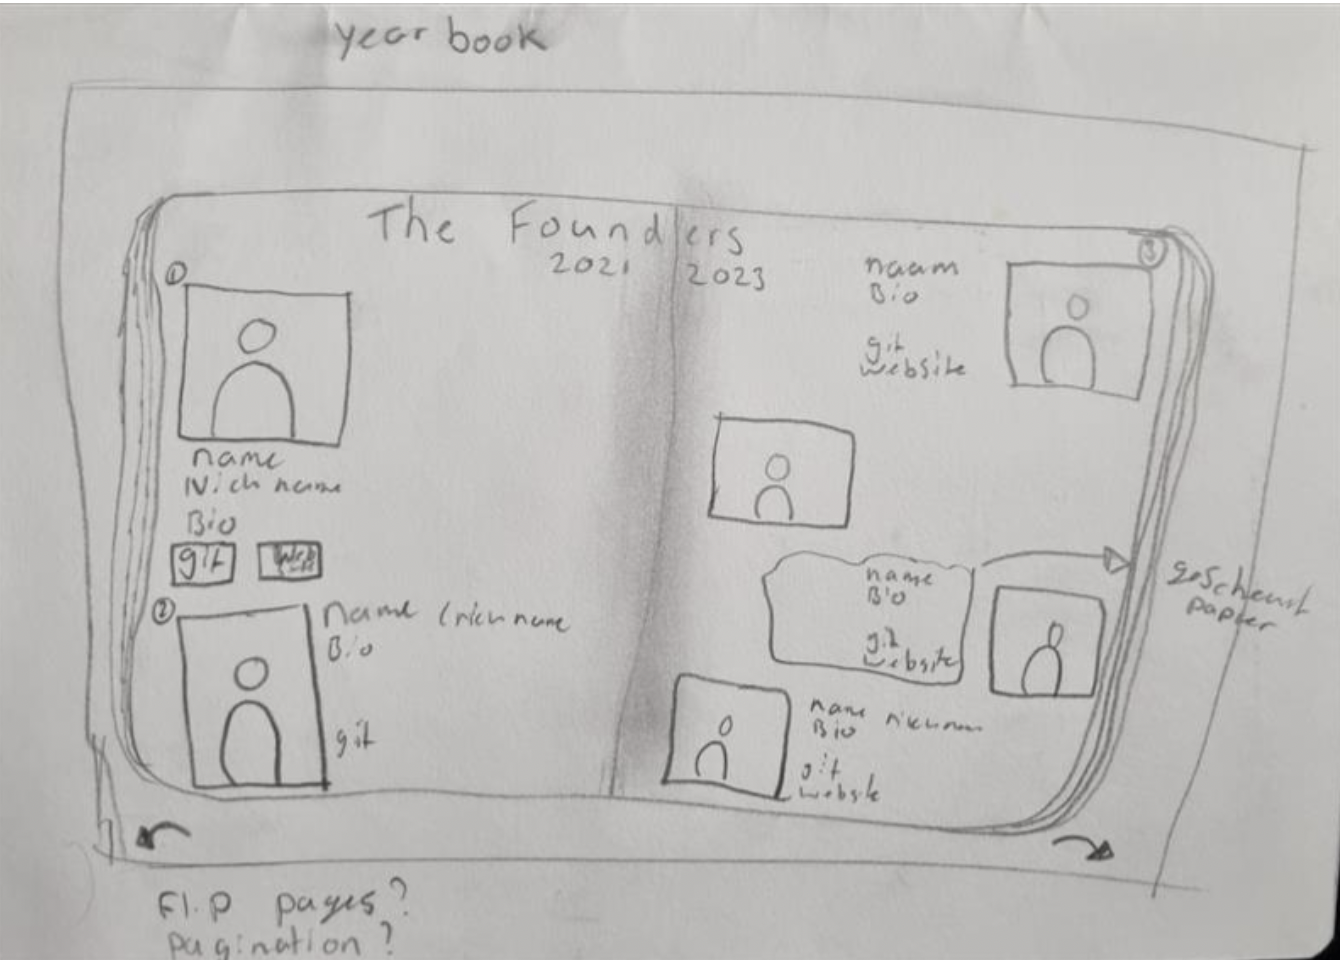 year book
The Founders
2021 2023
①
name
Nich name
Bio
git
②
name (nich name
Bio
git
③
naam
Bio
git
website
name
Bio
git
website
gescheurt
papier
name nichnam
Bio
git
website
Flip pages?
pagination?